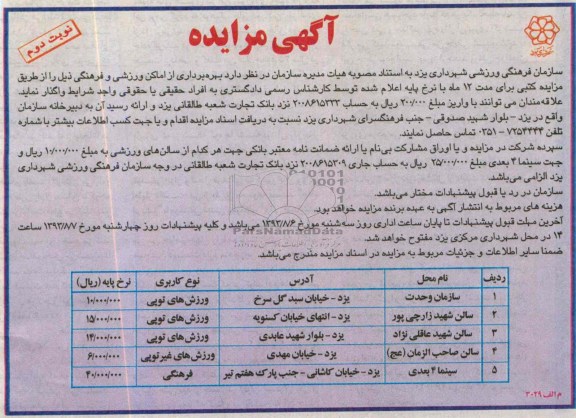 آگهی مزایده
نوبت دوم
سازمان فرهنگی ورزشی شهرداری یزد به استناد مصوبه هیات مدیره سازمان در نظر دارد بهره‌برداری از اماکن ورزشی و فرهنگی ذیل را از طریق
مزایده کتبی برای مدت ۱۲ ماه با نرخ پایه اعلام شده توسط کارشناس رسمی دادگستری به افراد حقیقی یا حقوقی واجد شرایط واگذار نماید.
علاقه‌مندان می توانند با واریز مبلغ ۲۰۰/۰۰۰ ریال به حساب ۲۰۰۸۶۱۵۳۳۳ نزد بانک تجارت شعبه طالقانی یزد و ارائه رسید آن به دبیرخانه سازمان
واقع در یزد - بلوار شهید صدوقی - جنب فرهنگسرای شهرداری یزد نسبت به دریافت اسناد مزایده اقدام و یا جهت کسب اطلاعات بیشتر با شماره
تلفن ۷۲۵۴۴۴۴ - ۰۳۵۱ تماس حاصل نمایند.
سپرده شرکت در مزایده و یا اوراق مشارکت بی‌نام یا ارائه ضمانت نامه معتبر بانکی جهت هر کدام از سالن‌های ورزشی به مبلغ ۱۰/۰۰۰/۰۰۰ ریال و
جهت سینما ۴ بعدی مبلغ ۲۵/۰۰۰/۰۰۰ ریال به حساب جاری ۲۰۰۸۶۱۵۳۰۹ نزد بانک تجارت شعبه طالقانی در وجه سازمان فرهنگی ورزشی شهرداری
یزد الزامی می‌باشد.
سازمان در رد یا قبول پیشنهادات مختار می‌باشد.
هزینه های مربوط به انتشار آگهی به عهده برنده مزایده خواهد بود.
آخرین مهلت قبول پیشنهادات تا پایان ساعت اداری روز سه‌شنبه مورخ ۱۳۹۳/۸/۶ می‌باشد و کلیه پیشنهادات روز چهارشنبه مورخ ۱۳۹۳/۸/۷ ساعت
۱۴ در محل شهرداری مرکزی یزد مفتوح خواهد شد.
ضمنا سایر اطلاعات و جزئیات مربوط به مزایده در اسناد مزایده مندرج می‌باشد.
ردیف نام محل آدرس نوع کاربری نرخ پایه (ریال)
۱ سازمان وحدت یزد - خیابان سید گل سرخ ورزش‌های توپی ۱۰/۰۰۰/۰۰۰
۲ سالن شهید زارچی پور یزد - انتهای خیابان کسنویه ورزش‌های توپی ۱۵/۰۰۰/۰۰۰
۳ سالن شهید عاقلی نژاد یزد - بلوار شهید عابدی ورزش‌های توپی ۱۴/۰۰۰/۰۰۰
۴ سالن صاحب الزمان (عج) یزد - خیابان مهدی ورزش‌های غیرتوپی ۶/۰۰۰/۰۰۰
۵ سینما ۴ بعدی یزد - خیابان کاشانی - جنب پارک هفتم تیر فرهنگی ۴۰/۰۰۰/۰۰۰
م الف ۳۰۲۹
ParsNamadData